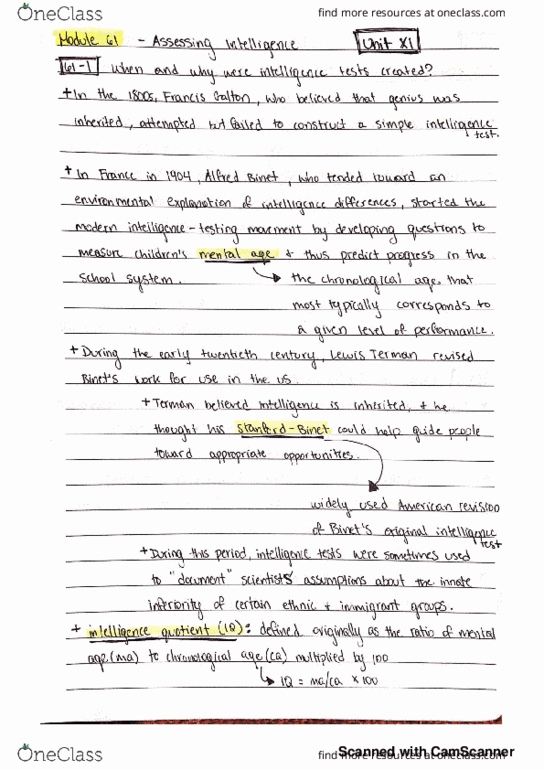 OneClass
find more resources at oneclass.com
find more resources at oneclass.com
Module 61 - Assessing Intelligence Unit XI
61-1 when and why were intelligence tests created?
+ In the 1800s, Francis Galton, who believed that genius was
inherited, attempted but failed to construct a simple intelligence
test.
+ In France in 1904, Alfred Binet, who tended toward an
environmental explanation of intelligence differences, started the
modern intelligence-testing movement by developing questions to
measure children's mental age + thus predict progress in the
school system.
the chronological age that
most typically corresponds to
a given level of performance.
+ During the early twentieth century, Lewis Terman revised
Binet's work for use in the US.
+ Terman believed intelligence is inherited, + he
thought his Stanford-Binet could help guide people
toward appropriate opportunities.
widely used American revision
of Binet's original intelligence
test
+ During this period, intelligence tests were sometimes used
to "document" scientists assumptions about the innate
inferiority of certain ethnic + immigrant groups.
+ intelligence quotient (IQ): defined originally as the ratio of mental
age (ma) to chronological age (ca) multiplied by 100
IQ = ma/ca × 100
OneClass
find more resources at oneclass.com
Scanned with CamScanner